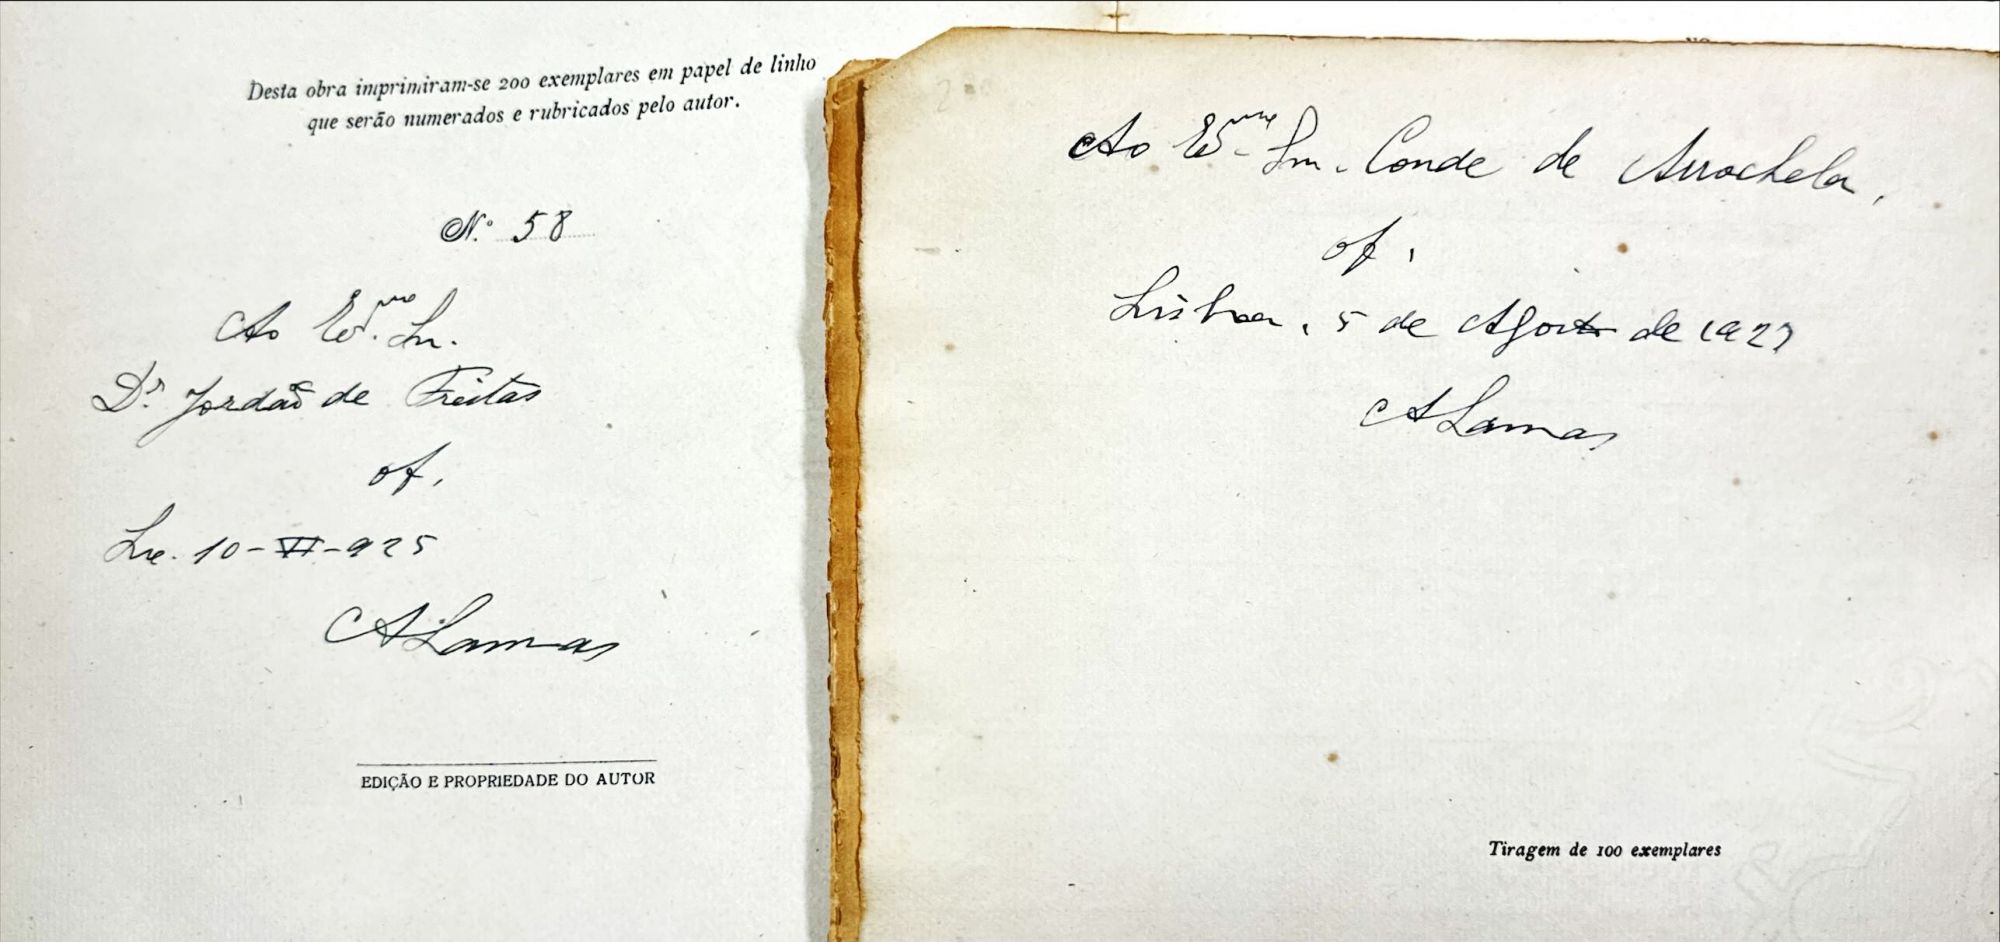 Desta obra imprimiram-se 200 exemplares em papel de linho
que serão numerados e rubricados pelo autor.
N.º 58
Ao Ex.mo Sr.
Dr. Jordão de Freitas
of,
Lx. 10-VI-925
ALamas
EDIÇÃO E PROPRIEDADE DO AUTOR
Ao Ex.mo Sr. Conde de Arrochela,
of,
Lisboa, 5 de Agosto de 1927
ALamas
Tiragem de 100 exemplares